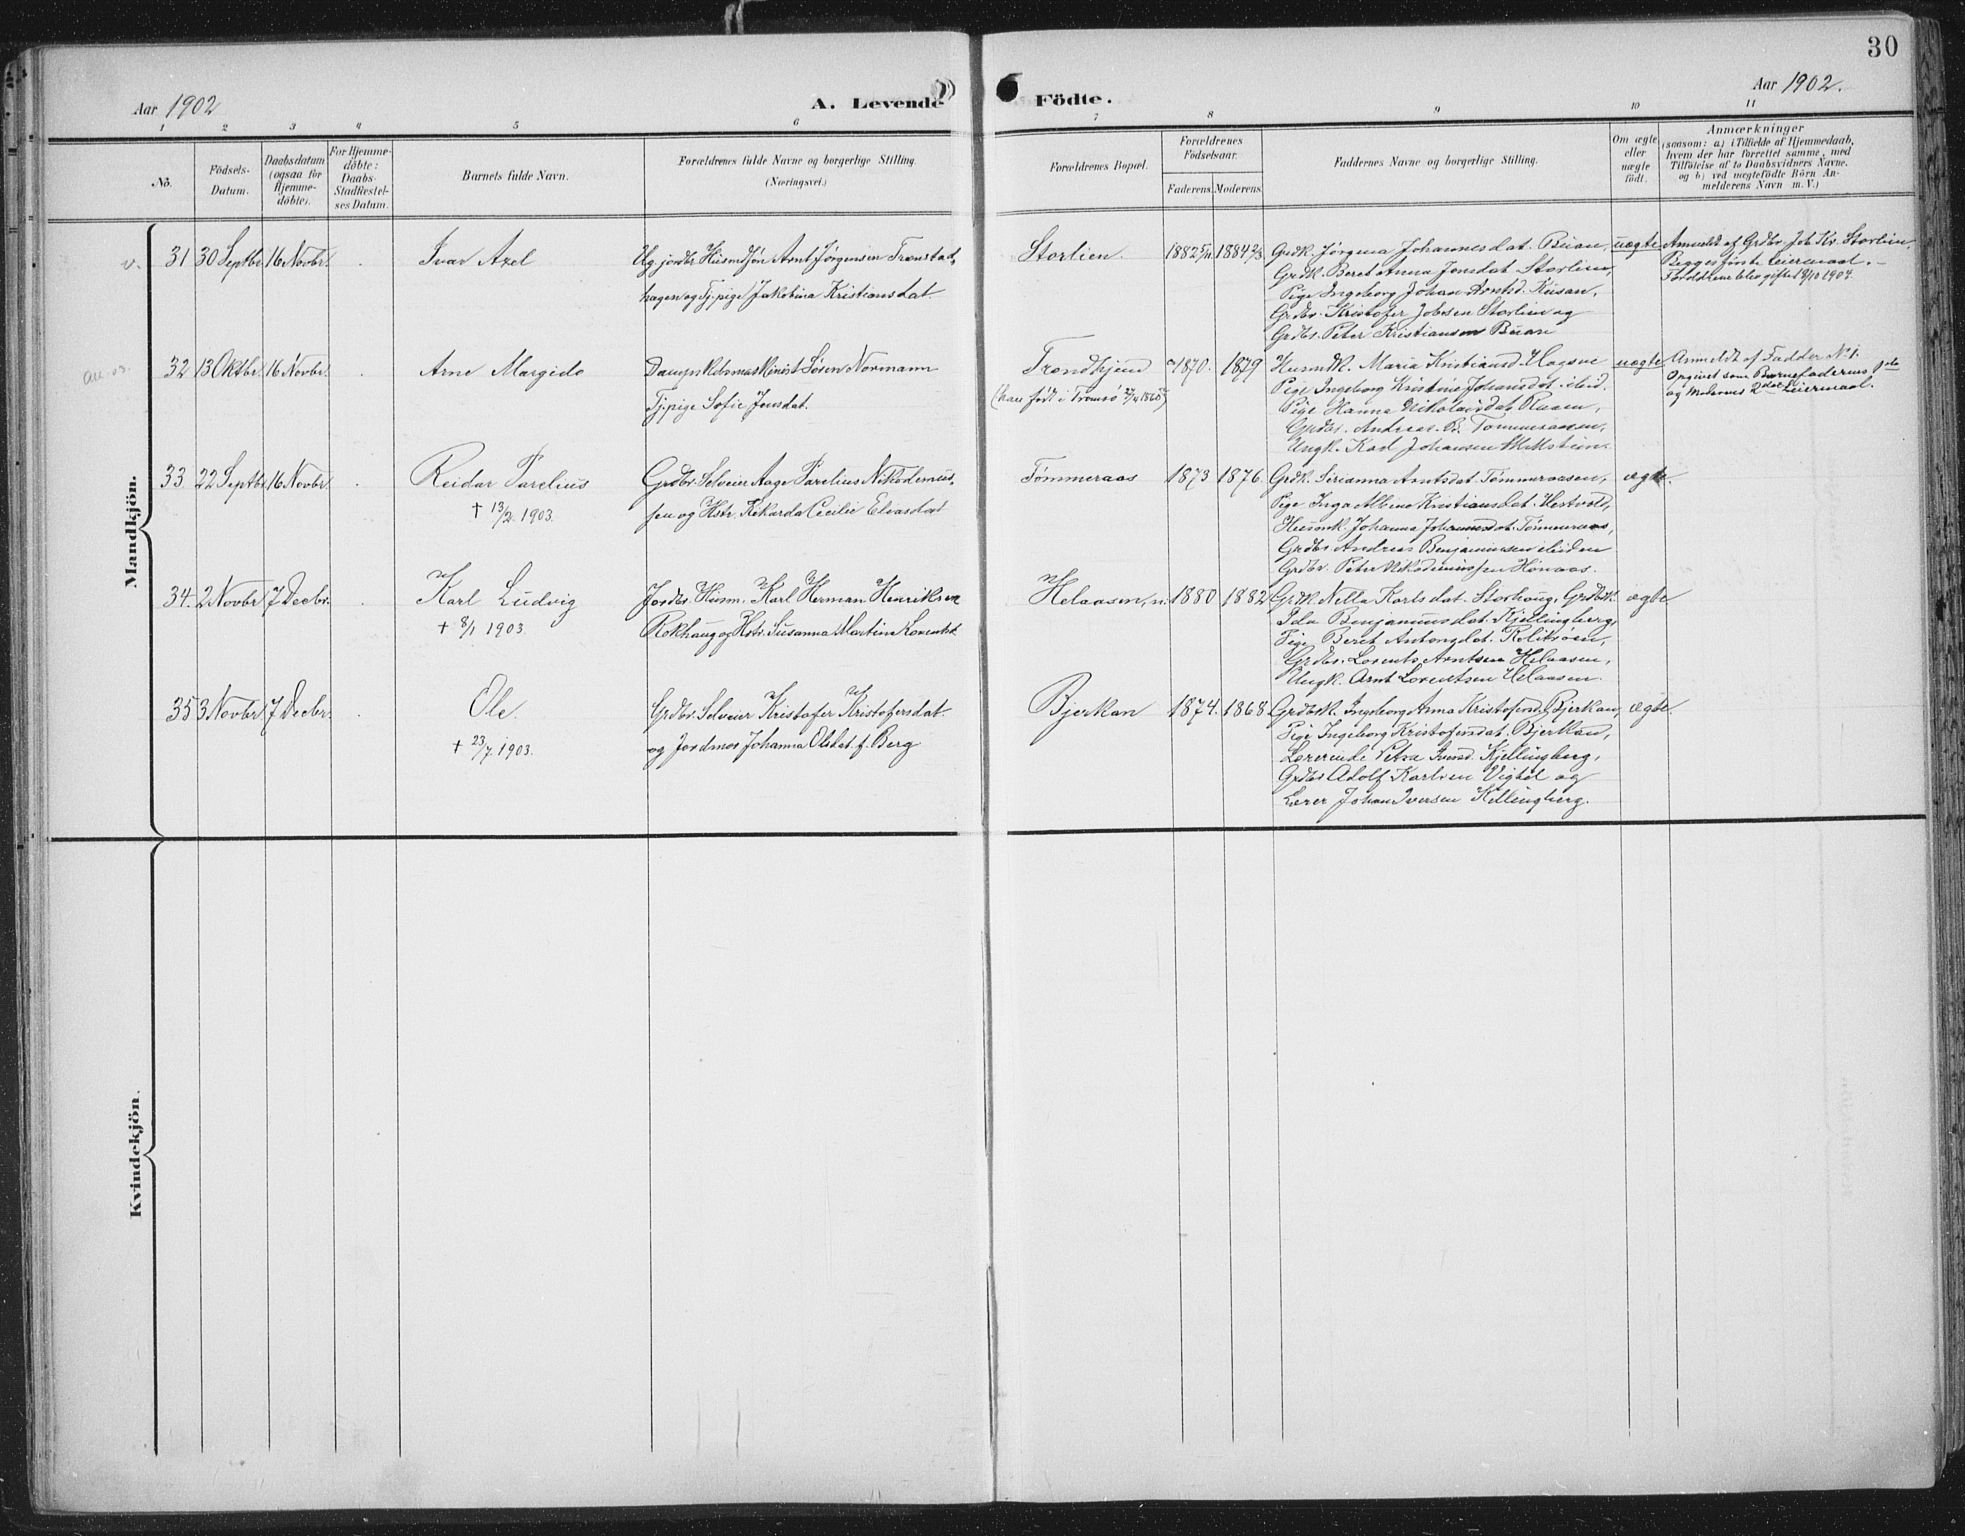 30
Aar 1902
A. Levende
Födte.
Aar 1902.
1 2 3 4 5 6 7 8 9 10 11
No.
Födsels-
Datum.
Daabsdatum
(ogsaa for
Hjemme-
döbte).
For Hjemme-
döbte:
Daabs-
Stadfæstel-
ses Datum.
Barnets fulde Navn.
Forældrenes fulde Navne og borgerlige Stilling.
(Næringsvei.)
Forældrenes Bopæl.
Forældrenes
Födselsaar.
Faderens. Moderens.
Faddernes Navne og borgerlige Stilling.
Om ægte
eller
uægte
födt.
Anmærkninger
(saasom: a) i Tilfælde af Hjemmedaab,
hvem der har forrettet samme, med
Tilföielse af to Daabsvidners Navne.
og b) ved uægtefödte Börn An-
melderens Navn m. V.)
Mandkjön.
31 30 Septbr 16 Novbr. Ivar Axel
Ug. jordbr. Husmdsøn Arnt Jørgensen Trønstad-
hagen og Tj.pige Jakobina Kristiansdat.
Storlien. 1882 1884
Grdk. Jørgina Johannesdat. Buan,
Grdk. Beret Anna Jonsdat Storlien,
Pige Ingeborg Johan Arntsd.
Grdbr. Kristofer Jobsen Storlien og
Grdbr. Peter Kristiansen Buan
uægte
Anmeldt af Grdbr. Job Kr. Storlien.
Begges første Leiermaal.
Forældrene blev gifte 18/10 1904.
32 13 Oktbr. 16 Novbr. Arne Margido
Dampskibsmaskinist Søren Normann
Tj.pige Sofie Jonsdat.
Trondhjem
(han født i Tromsø
1870. 1879
Husmk. Maria Kristiansd.
Pige Ingeborg Kristine Johansdat. ibid.
Pige Hanna Nikolaisdat
Grdbr. Andreas B. Tømmeraasen,
Ungk. Karl Johansen
uægte
Anmeldt af Fadder No 1.
Opgivet som Barnefaderens 1ste
og Moderens 2det Leiermaal.
33 22 Septbr 16 Novbr. Reidar Parelius
† 13/2 1903.
Grdbr. Selveier Aage Parelius Nikodemus-
sen og Hstr. Rikarda Cecilie Eliasdat
Tømmeraas 1873 1876.
Grdk. Serianna Arntsdat Tømmeraasen,
Pige Inga Albine Kristiansdat.
Husmk. Johanna Johannesdat. Tømmeraas,
Grdbr. Andreas Benjaminsen ibidem
Grdbr. Peter Nikodemussen
ægte.
34. 2 Novbr 7 Decbr. Karl Ludvig
† 8/1 1903.
Jordbr. Husm. Karl Herman Henriksen
Rokhaug og Hstr. Susanna Martina Lorentsd.
Helaasen, n. 1880 1882
Grdk. Nella Karlsdat. Storhaug, Grdbrk.
Ida Benjaminsdat. Kjellingberg,
Pige Beret Antonsdat.
Grdbr. Lorents Arntsen Helaasen,
Ungk. Arnt Lorentsen Helaasen.
ægte
35 3 Novbr. 7 Decbr. Ole.
† 23/7 1903.
Grdbr. Selveier Kristofer Kristofersdat.
og Jordmor Johanna Olsdat f. Berg
Bjerkan 1874. 1868.
Grdbrk. Ingeborg Anna Kristofersd. Bjerkan,
Pige Ingeborg Kristofersdat. Bjerkan,
Lærerinde Petra Iversd. Kjellingberg,
Grdbr. Adolf Karlsen Vigdel og
Lærer Johan Iversen Kellingberg.
ægte.
Kvindekjön.